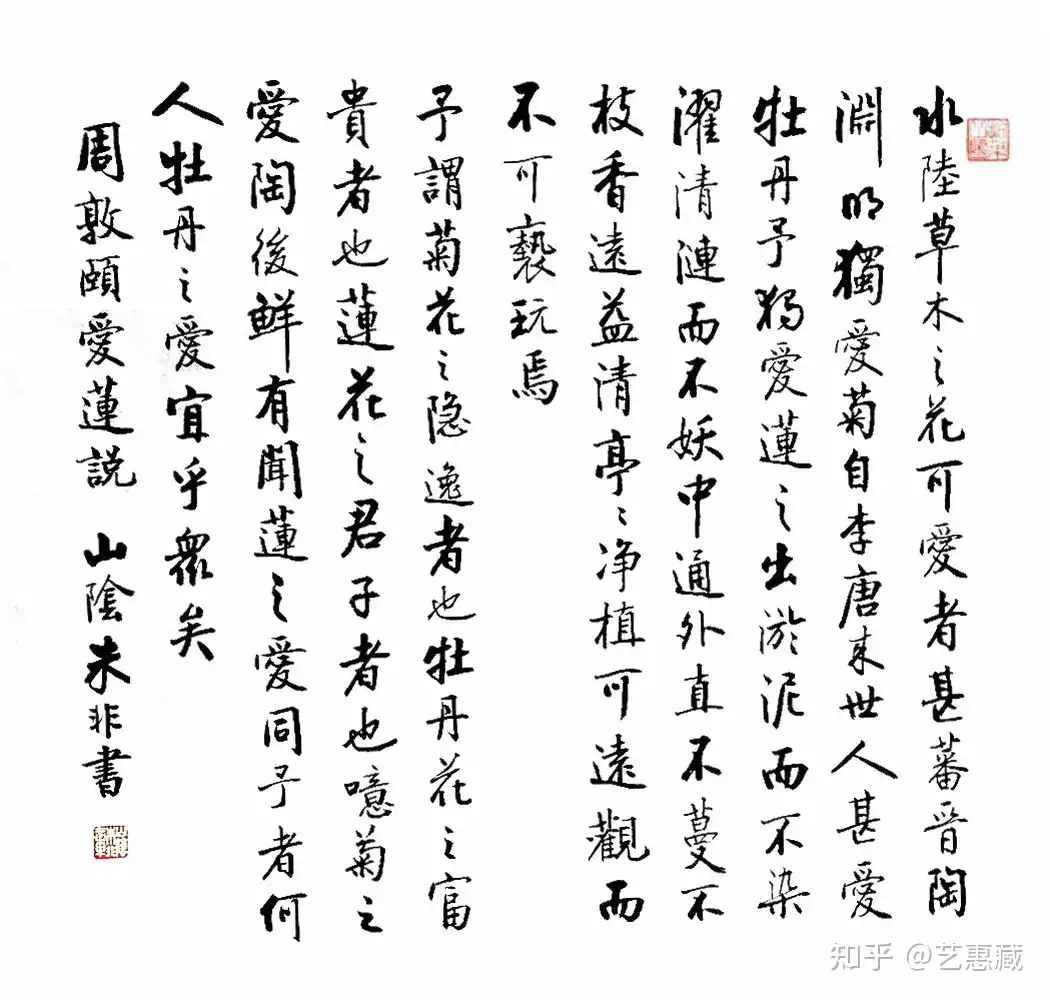 水陸草木之花可愛者甚蕃晉陶
淵明獨愛菊自李唐来世人甚愛
牡丹予独愛蓮之出淤泥而不染
濯清漣而不妖中通外直不蔓不
枝香遠益清亭〻净植可遠觀而
不可褻玩焉
予謂菊花之隐逸者也牡丹花之富
貴者也蓮花之君子者也噫菊之
愛陶後鮮有聞蓮之愛同予者何
人牡丹之愛宜乎衆矣
周敦頤愛蓮説 山陰朱非書
知乎 @艺惠藏